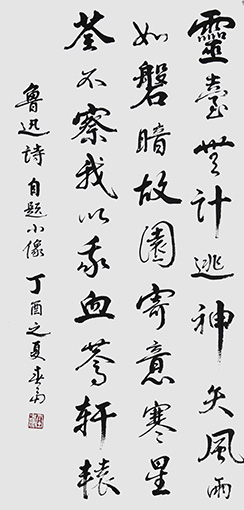 靈臺無計逃神矢風雨
如磐暗故園寄意寒星
荃不察我以我血薦軒轅
魯迅詩自題小像丁酉之夏